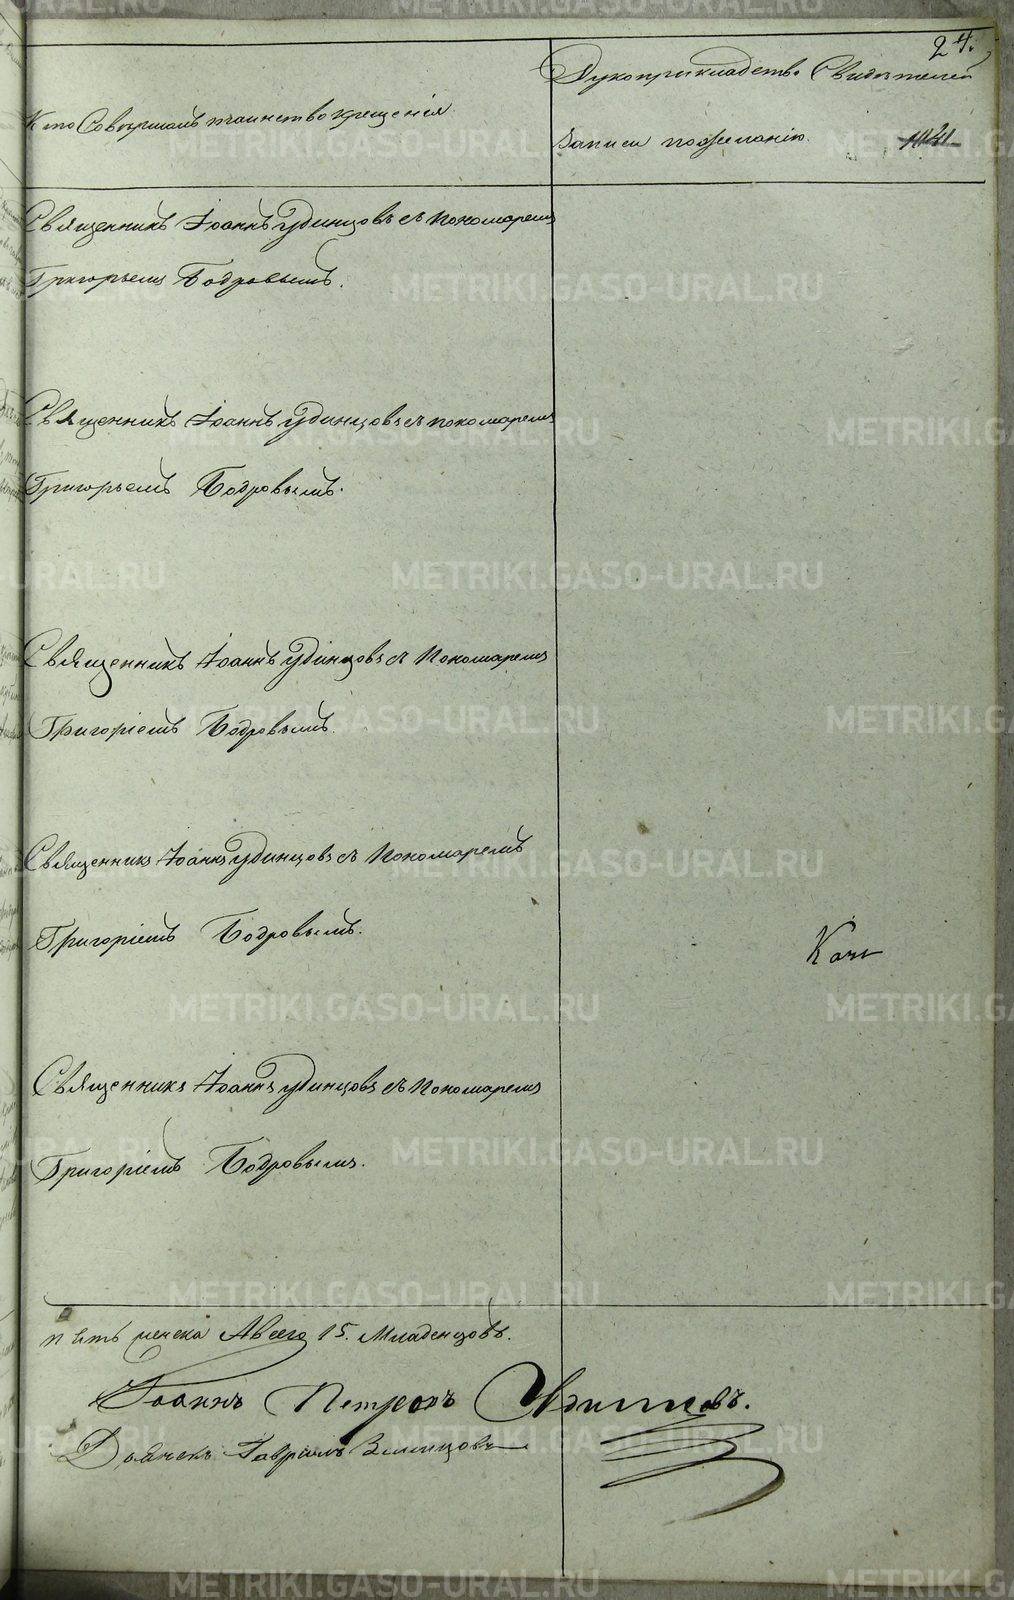 24.
Кто Совершалъ таинство крещенія
Рукоприкладство Свидетелей
Записи по желанію.
Священникъ Іоаннъ Удинцовъ съ пономаремъ
Григорьемъ Бодровымъ.
Священникъ Іоаннъ Удинцовъ съ пономаремъ
Григорьемъ Бодровымъ.
Священникъ Іоаннъ Удинцовъ съ Пономаремъ
Григоріемъ Бодровымъ.
Священникъ Іоаннъ Удинцовъ съ Пономаремъ
Григоріемъ Бодровымъ.
Священникъ Іоаннъ Удинцовъ съ Пономаремъ
Григоріемъ Бодровымъ.
Всего 15. Младенцовъ.
Іоаннъ Петровъ Удинцовъ.
Дьячекъ Гавріилъ
METRIKI.GASO-URAL.RU